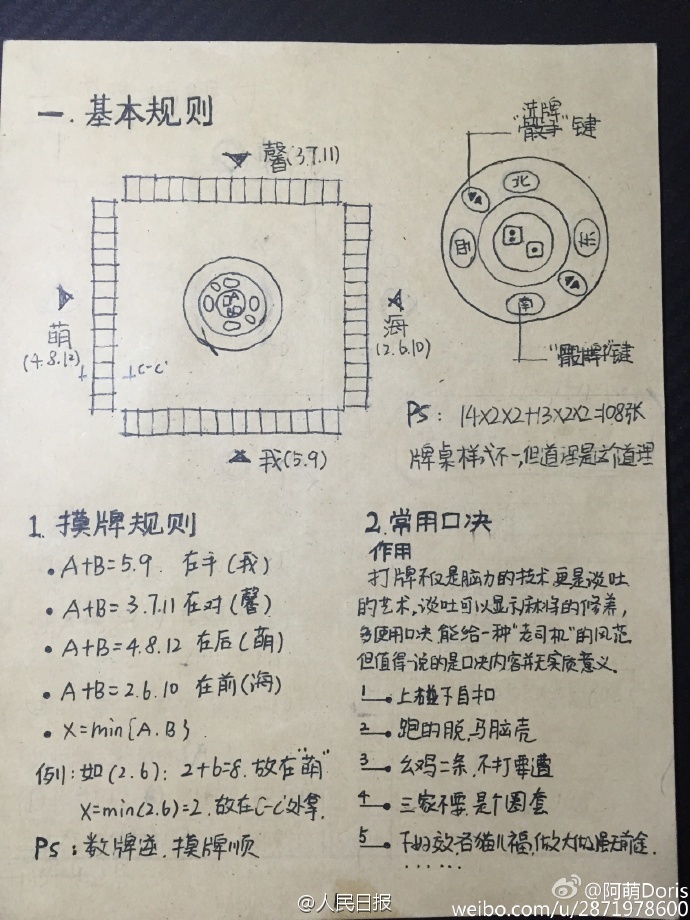 一.基本规则
馨(3.7.11)
萌
(4.8.12)
C-C'
海
(2.6.10)
我(5.9)
洗牌
"骰子"键
北
西
东
南
"骰牌"键
PS: 14×2×2+13×2×2=108张
牌桌样式不一,但道理是这个道理
1.摸牌规则
•A+B=5.9. 在手(我)
•A+B=3.7.11在对(馨)
•A+B=4.8.12 在后(萌)
•A+B=2.6.10 在前(海)
•X=min{A.B}
例1:如(2.6):2+6=8.放在"萌"
X=min(2.6)=2.放在C-C'处拿.
PS:数牌逆.摸牌顺
2.常用口决
作用
打牌不仅是脑力的技术,更是谈吐
的艺术,谈吐可以显示麻将的修养,
多使用口决能给一种"老司机"的风范
但值得一说的是口决内容并无实质意义.
1 上碰下自扣
2 跑的脱,马脑壳
3 幺鸡二条,不打要遭
4 三家不要,是个圈套
5
......
@人民日报
@阿萌Doris
weibo.com/u/2871978600